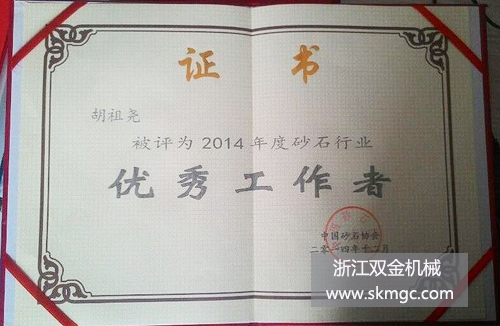 证 书
胡祖尧
被评为 2014 年度砂石行业
优秀工作者
中国砂石协会
二零一四年十二月
浙江双金机械
www.skmgc.com